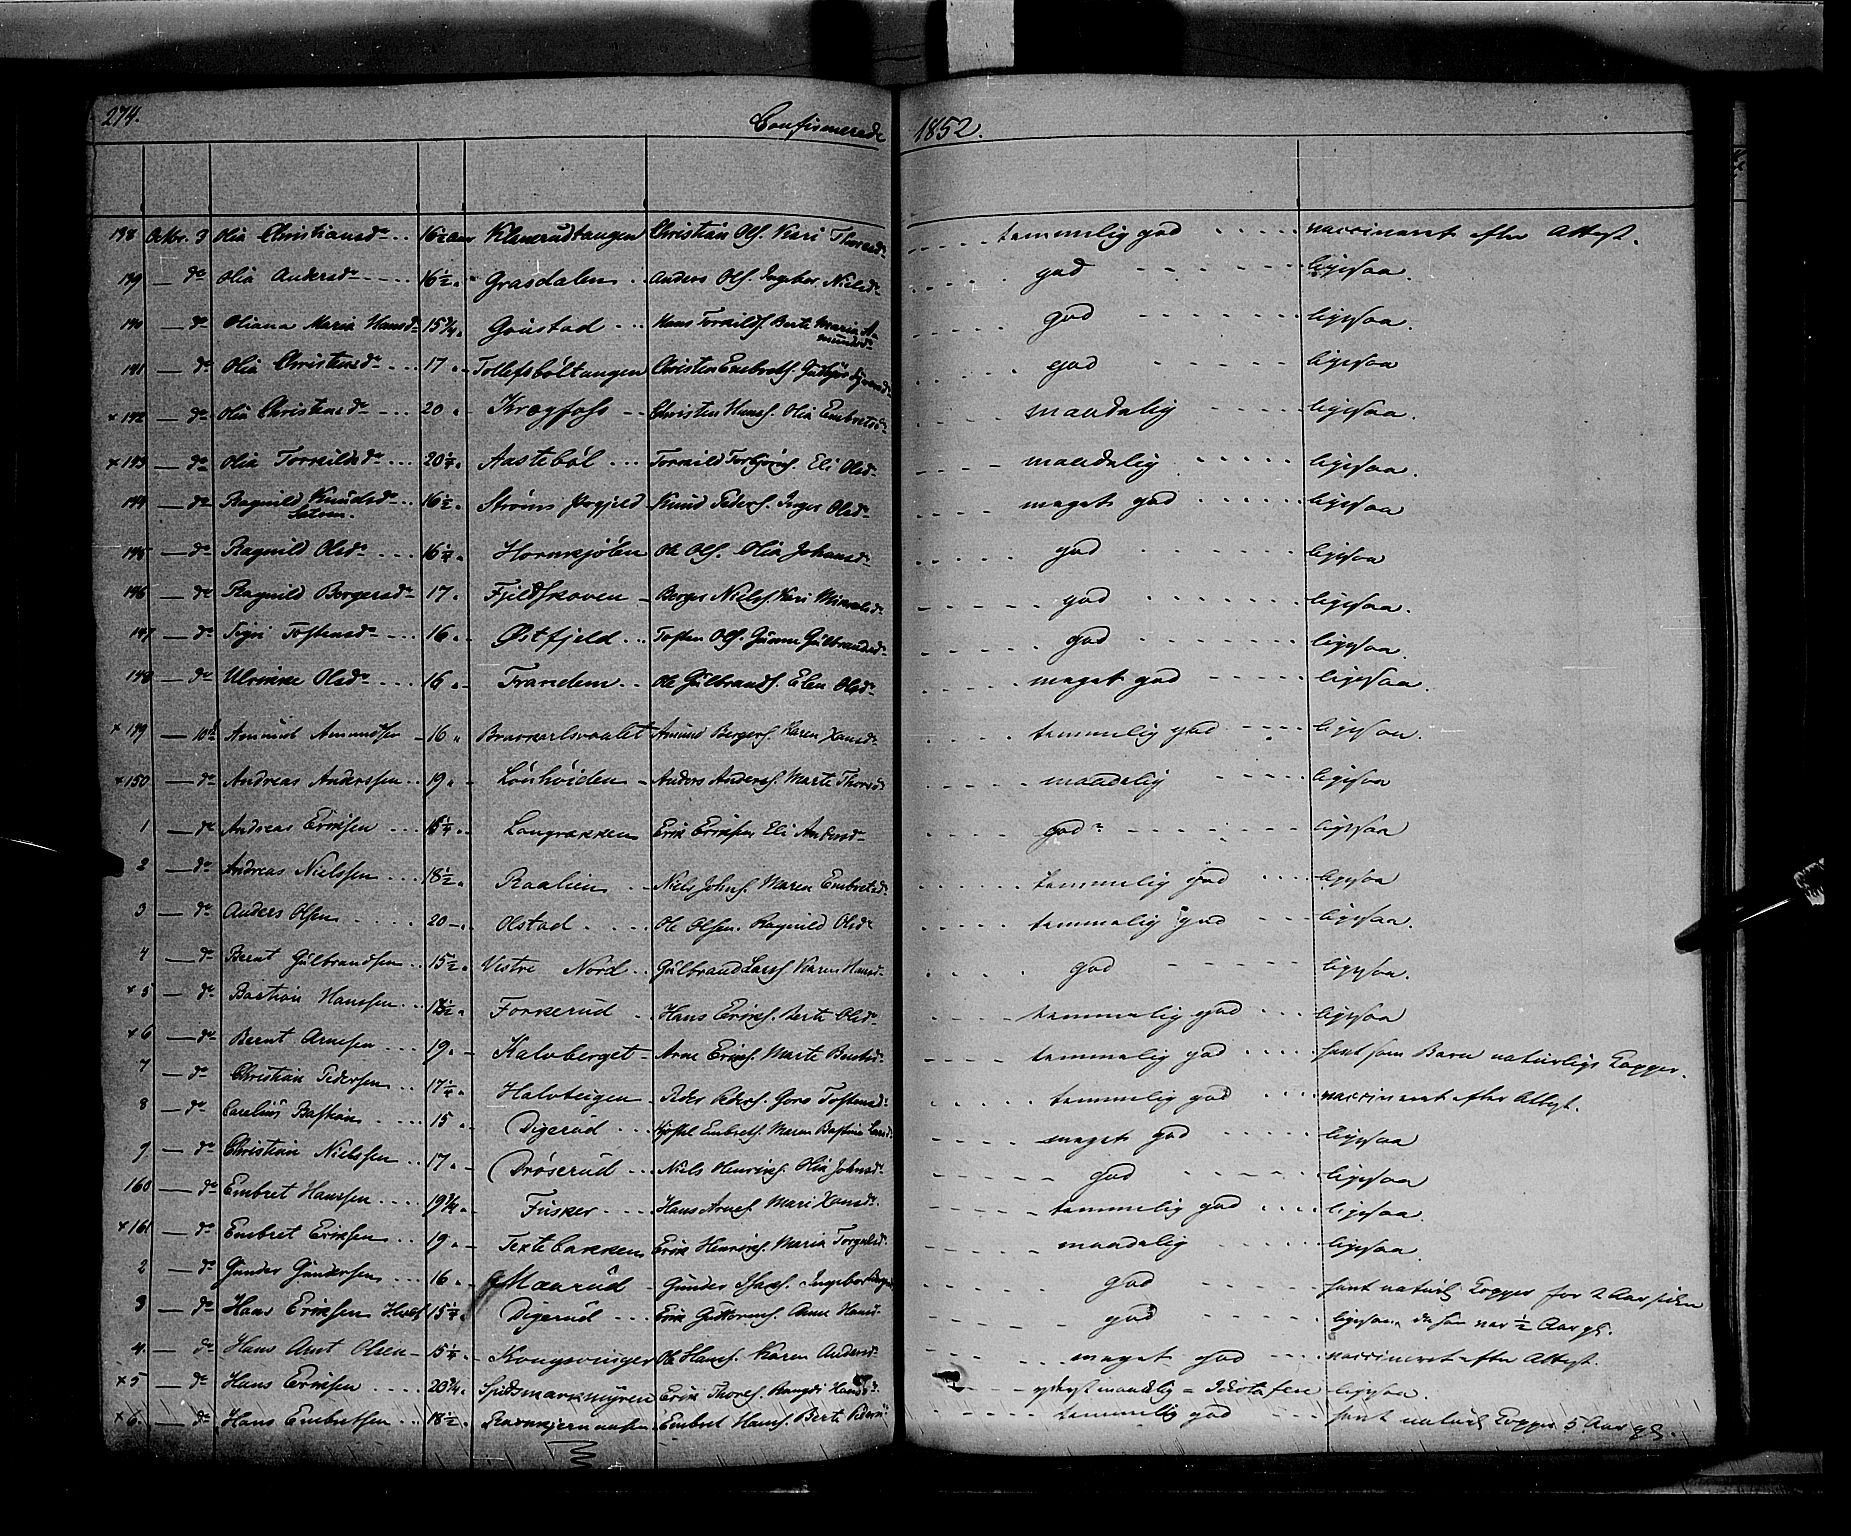 274. Confirmerede 1852.
138 Octbr. 3 Olia Christiansd. 16 Klemrudtangen Christian Ols. Kari temmelig god vaccineret efter Attest.
139 do Olia Andersd. 16½ Grasdalen Anders Ols. Ingebor Nielsd. god ligesaa.
140 do Oliana Maria Hansd. 15¾ Goustad Hans Torkilds. Berte Maria Amundsd. god ligesaa.
141 do Olia Christiansd. 17 Tollefsböltangen Christen Embrets. god ligesaa
× 142 do Olia Christiansd. 20 Kragfoss Christen Hans. Olia Embretsd. maadelig ligesaa.
× 143 do Olia Torkildsd. 20¼ Aasteböl Torkild Torbjörns. Eli Olsd. maadelig ligesaa
144 do Ragnild Knudsd. 16½ Knud Peders. Inger Olsd. meget god ligesaa
145 do Ragnild Olsd. 16¼ Hornkjölen Ole Ols. Olia Johansd. god ligesaa
146 do Ragnild Borgersd. 17. Fjeldskoven Borger Niels. Kari god ligesaa.
147 do Sigri Tostensd. 16 Østfjeld Tosten Ols. Gunne Gulbrandsd. god ligesaa.
148 do Ulrikke Olsd. 16 Trandem Ole Gulbrands. Elen Olsd. meget god ligesaa.
× 149 10d Amund Amundsen 16 Amund Bergers. Karen Hansd. temmelig god ligesaa.
× 150 do Andreas Anderssen 19 Lönhöiden Anders Anders. Marte Thorsd. maadelig ligesaa
1 do Andreas Eriksen Langbakken Erik Eriksen Eli Andersd. god ligesaa
2 do Andreas Nielssen 18½ Raalien Niels Johns. Maren Embretsd. temmelig god ligesaa
3 do Anders Olsen 20 Olstad Ole Olsen. Ragnild Olsd. temmelig god ligesaa.
4 do Bernt Gulbrandsen 15½ Vestre Nord Gulbrand Lars. Karen Hansd. god ligesaa.
× 5 do Bastian Hanssen Forkerud Hans Eriks. Berte Olsd. temmelig god ligesaa
× 6 do Bernt Arnesen 19 Kalvberget Arne Eriks. Marte temmelig god havt som Barn naturlige Kopper.
7 do Christian Pedersen 17¼ Halvteigen Peder Peders. Goro Tostensd. temmelig god vaccineret efter Attest.
8 do Carelius Bastian 15 Digerud Kjostel Embrets. Maren Bastine meget god ligesaa
9 do Christian Nielssen 17 Dröserud Niels Henriks. Olia Johnsd. god ligesaa
160 do Embret Hanssen 19¾ Fusker Hans Arnes. Mari Hansd. temmelig god ligesaa.
× 161 do Embret Eriksen 19 Textebakken Erik Henriks. Maria maadelig ligesaa.
2 do Gunder Gundersen 16 Maarud Gunder Isaks. Ingebor god havt naturl. Kopper for 2 Aar siden
3 do Hans Eriksen 15¼ Digerud Erik Guttorms. Anne Hansd. god ligesaa, da han var ½ Aar gl.
4. do Hans Amt Olsen 15¼ Kongsvinger Ole Hans. Karen Andersd. meget god vaccineret efter Attest.
× 5 do Hans Eriksen 20¾ Spidsmarkmyren Erik Thores. Hansd. yderst maadelig ligesaa.
× 6. do Hans Embretsen 18½ Embret Hans. Berte temmelig god havt naturl. Kopper 5 Aar gl.